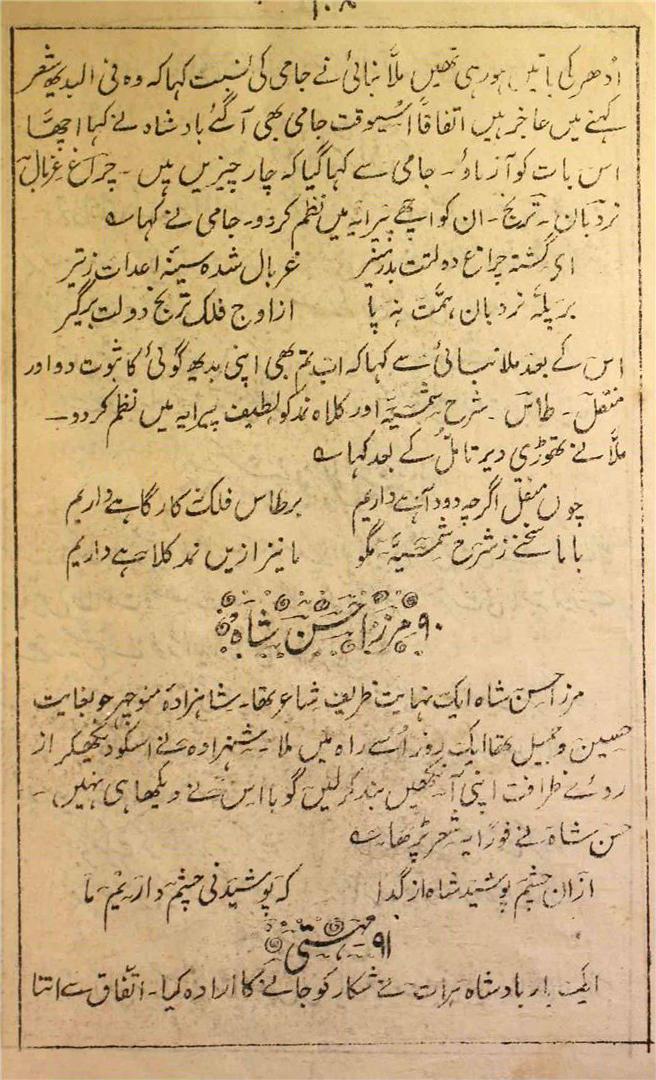 ادھر کی باتیں ہو رہی تھیں ملّا بنائی نے جامی کی نسبت کہا کہ وہ فی البدیہہ شعر
کہنے میں عاجز ہیں اتفاقاً اسیوقت جامی بھی آگئے بادشاہ نے کہا اچھا
اس بات کو آزماؤ۔ جامی سے کہا گیا کہ چار چیزیں ہیں۔ چراغ غربال
نردبان۔ ترنج۔ ان کو اچھے پیرایہ میں نظم کردو۔ جامی نے کہا ؎
ای گشتہ چراغ دولتت بدر منیر
غربال شدہ سینۂ اعدات ز تیر
بر پلّہ نردبان ہمّت نہ پا
از اوج فلک ترنج دولت برگیر
اس کے بعد ملا بنائی سے کہا کہ اب تم بھی اپنی بدیہہ گوئی کا ثبوت دو اور
منقل۔ طاس۔ شرح شمسیہ اور کلاہ نمد کو لطیف پیرایہ میں نظم کردو۔
ملّا نے تھوڑی دیر تامّل کے بعد کہا ؎
چوں منقل اگرچہ دود آہے داریم
بر طاس فلک کارگاہے داریم
باما سخنے ز شرح شمسیّہ مگو
ما نیز ازیں نمد کلاہے داریم
۹۰ مرزا حسن شاہ
مرزا حسن شاہ ایک نہایت ظریف شاعر تھا۔ شاہزادۂ منوچہر جو بغایت
حسین و جمیل تھا ایک روز اُسے راہ میں ملا۔ شہزادہ نے اسکو دیکھکر از
روئے ظرافت اپنی آنکھیں بند کرلیں گویا اس نے دیکھا ہی نہیں۔
حسن شاہ نے فوراً یہ شعر پڑھا ؎
ازان چشم پوشید شاہ از گدا
کہ پوشیدنی چشم داریم ما
۹۱ مہستی
ایک بار بادشاہ ہرات نے شکار کو جانے کا ارادہ کیا۔ اتفاق سے اتنا